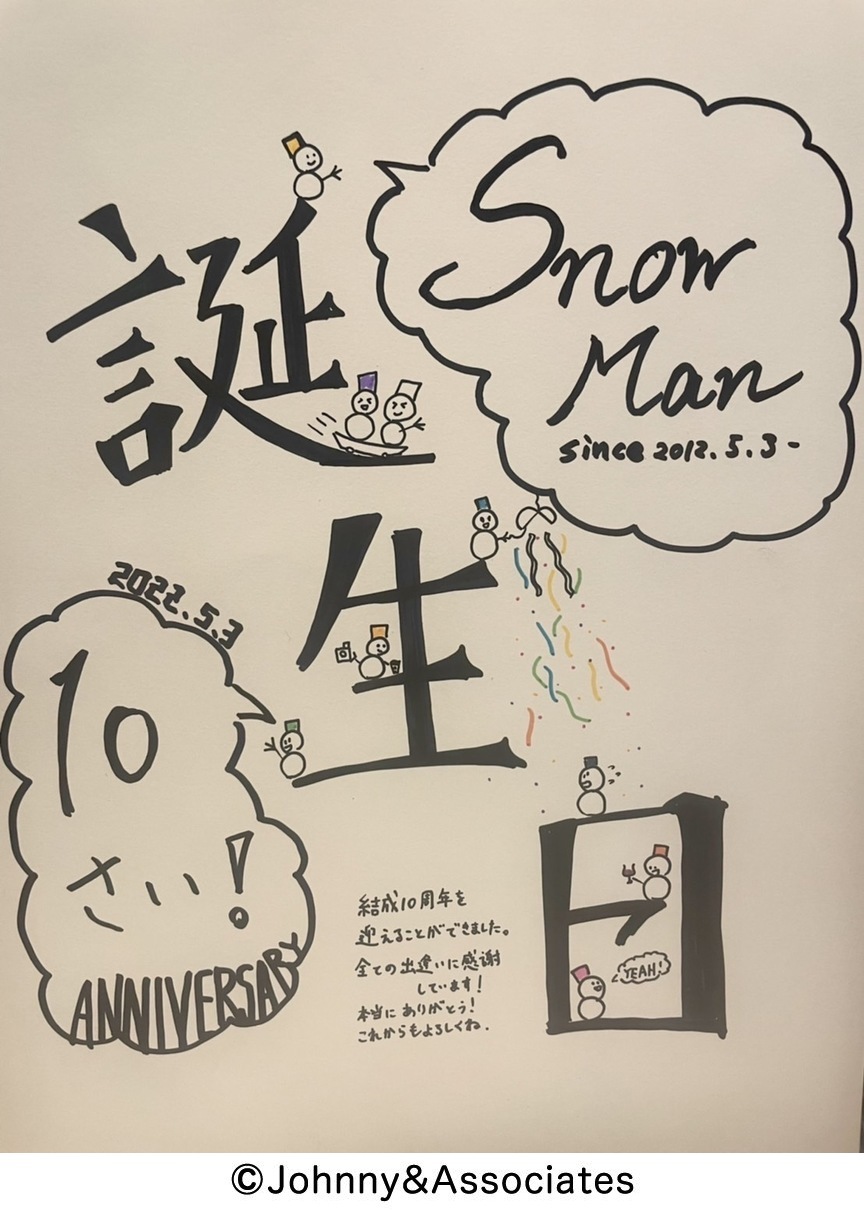 Snow
Man
since 2012.5.3-
誕
生
日
2022.5.3
10
さい!
ANNIVERSARY
結成10周年を
迎えることができました。
全ての出逢いに感謝
しています!
本当にありがとう!
これからもよろしくね.
YEAH!
©Johnny&Associates